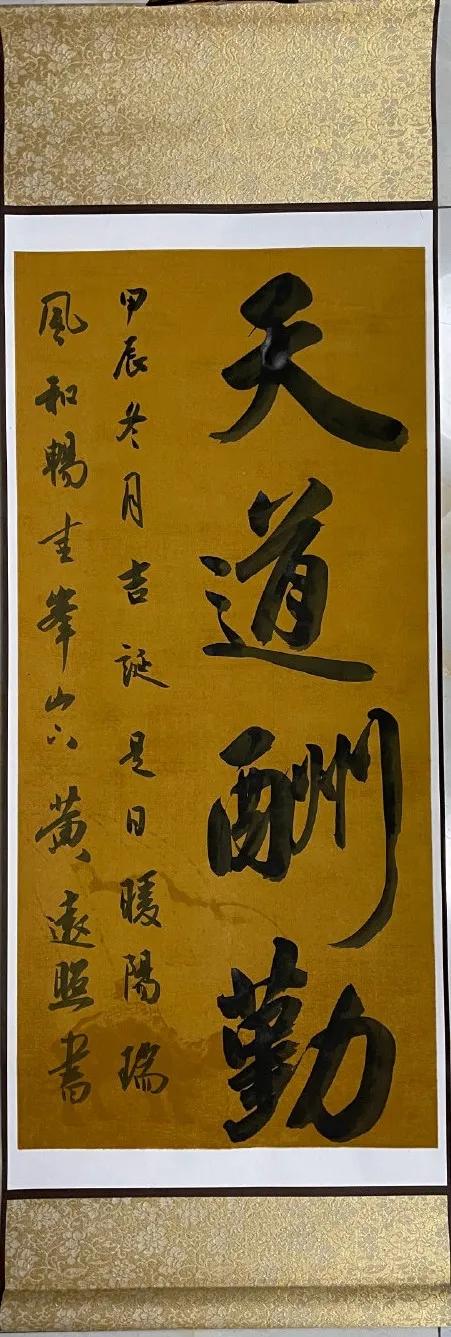 天道酬勤
甲辰冬月吉誕是日暖陽瑞
風和暢圭峯山下黄遠照書